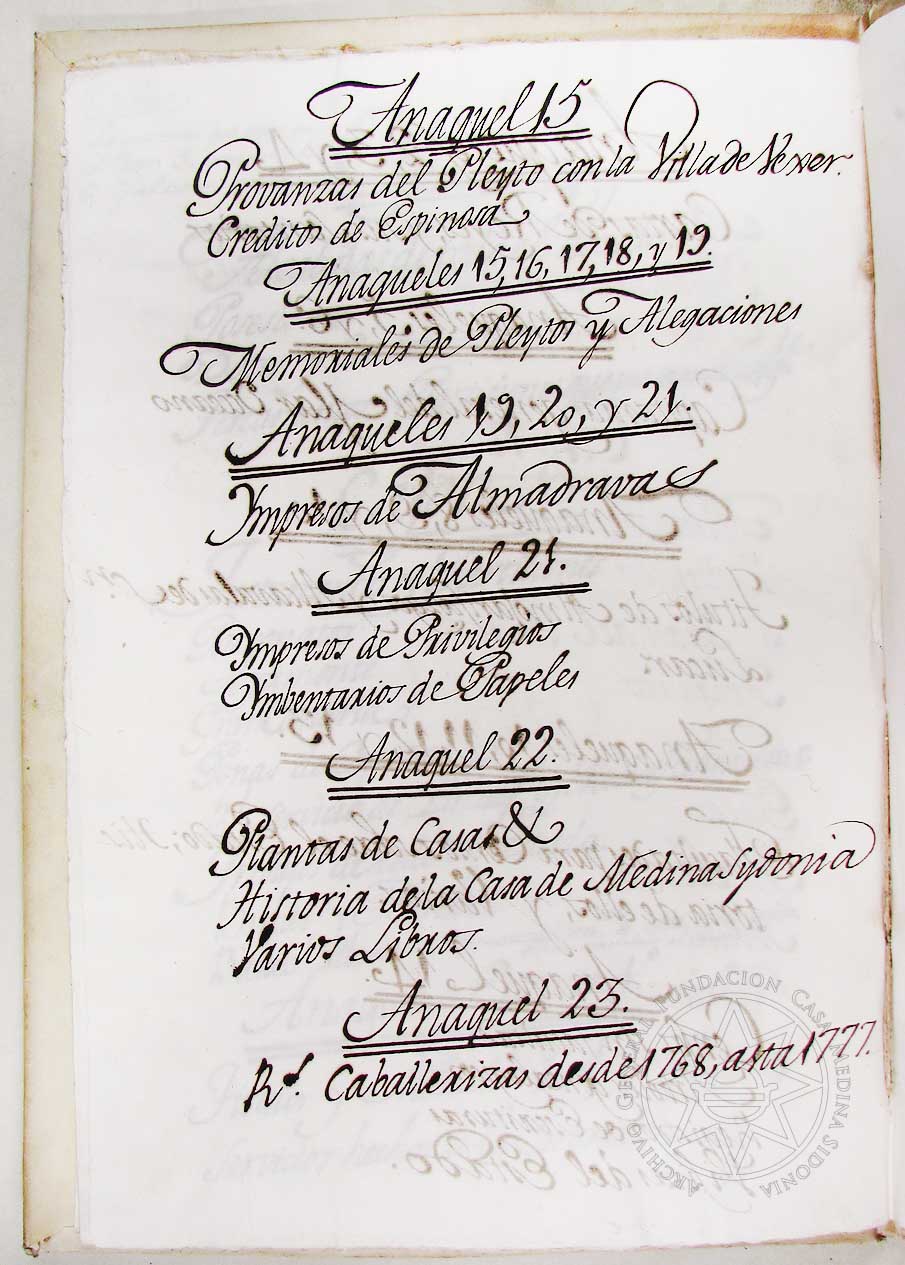 Anaquel 15
Provanzas del Pleyto con la Villa de Vexer.
Creditos de Espinosa
Anaqueles 15, 16, 17, 18, y 19.
Memoriales de Pleytos y Alegaciones
Anaqueles 19, 20, y 21.
Ympresos de Almadravas
Anaquel 21.
Ympresos de Privilegios
Ymbentarios de Papeles
Anaquel 22.
Plantas de Casas &
Historia de la Casa de Medina Sydonia
Varios Libros.
Anaquel 23.
Rs. Caballerizas desde 1768, asta 1777.
ARCHIVO GENERAL FUNDACION CASA MEDINA SIDONIA